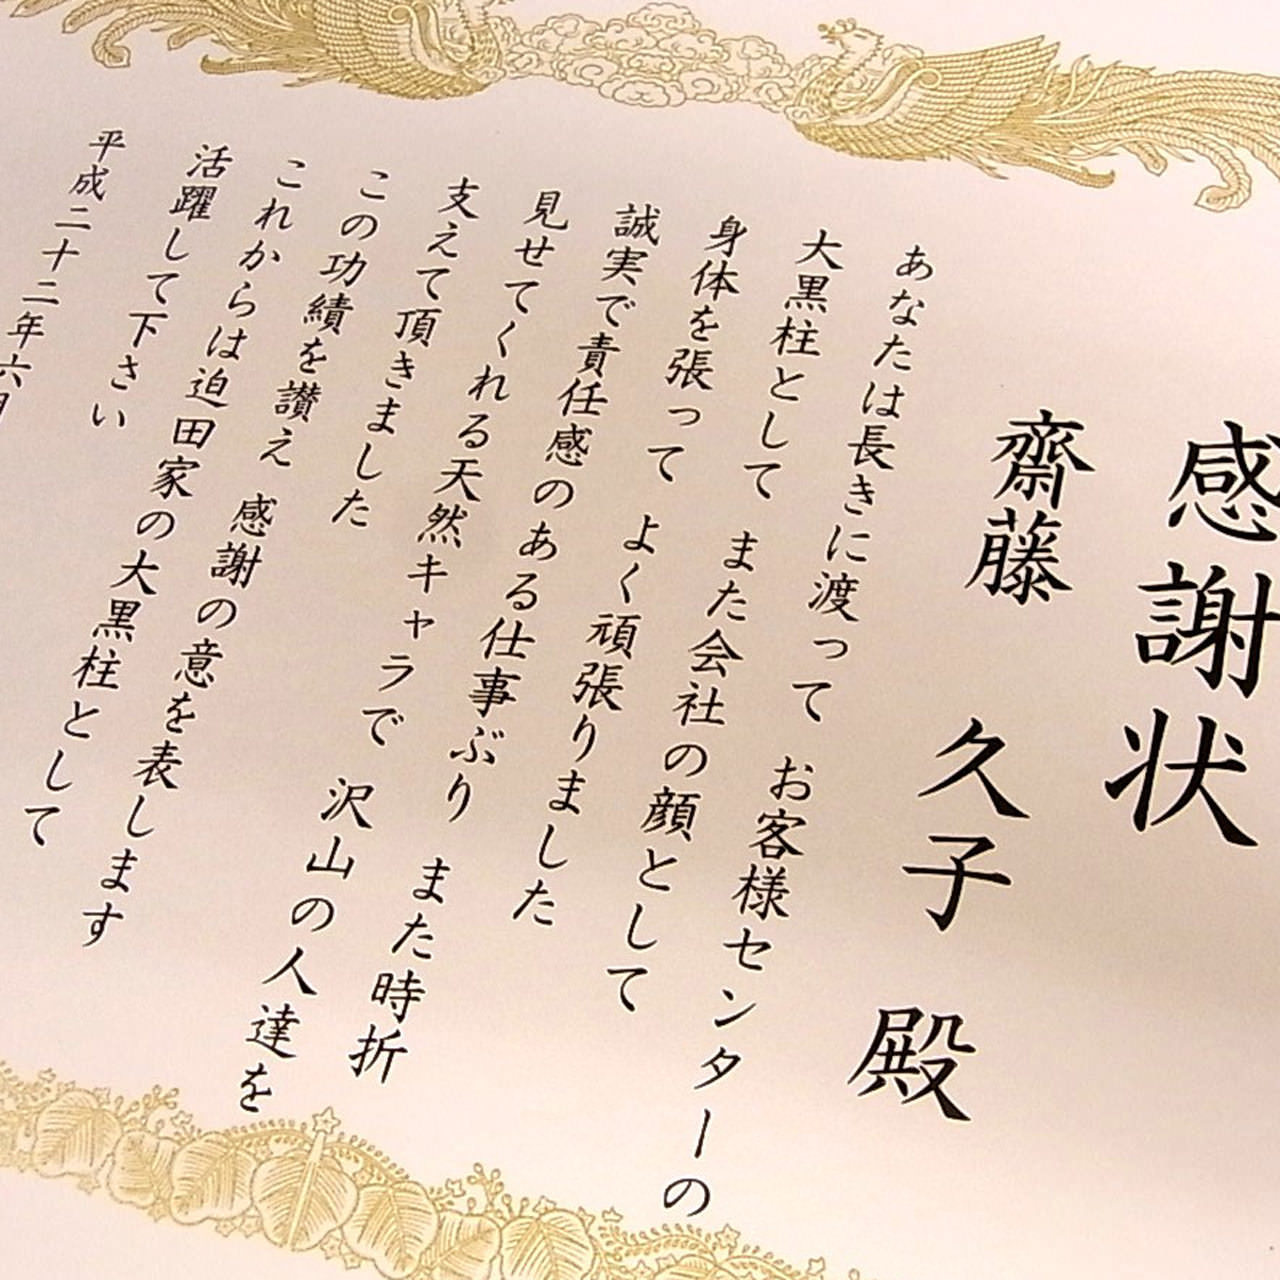 感謝状
齋藤 久子 殿
あなたは長きに渡って お客様センターの
大黒柱として また会社の顔として
身体を張って よく頑張りました
誠実で責任感のある仕事ぶり また時折
見せてくれる天然キャラで 沢山の人達を
支えて頂きました
この功績を讃え 感謝の意を表します
これからは迫田家の大黒柱として
活躍して下さい
平成二十二年六月